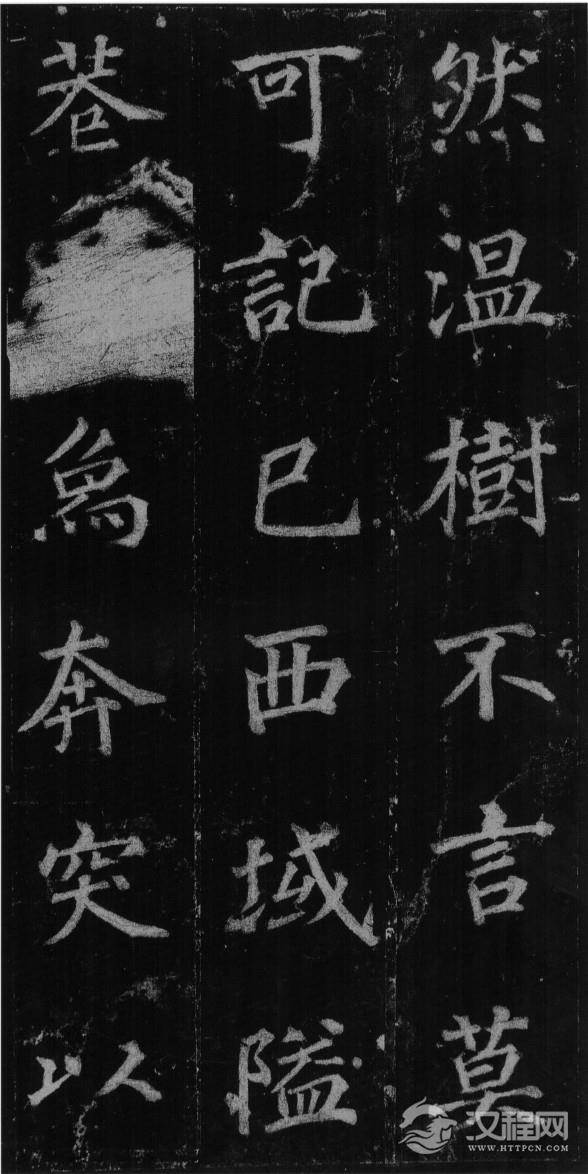 然温樹不言莫
可記已西域隘
巷象奔突以
汉程网
WWW.HTTPCN.COM